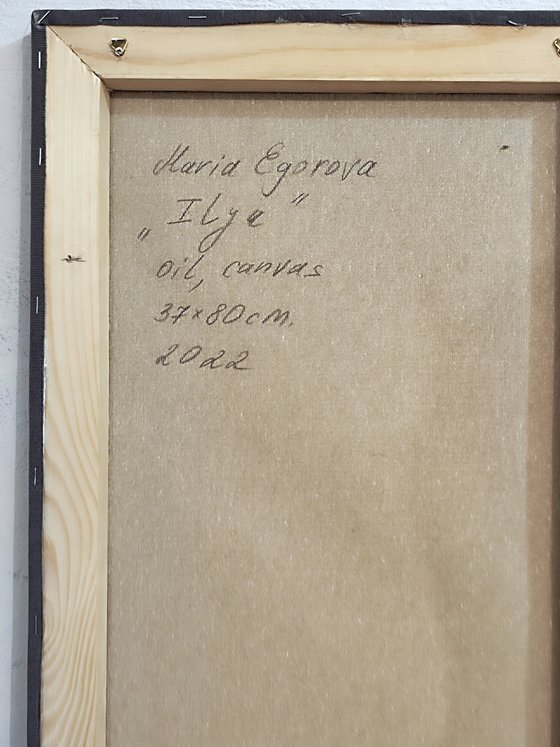 Maria Egorova
„Ilya"
oil, canvas
37×80cm.
2022